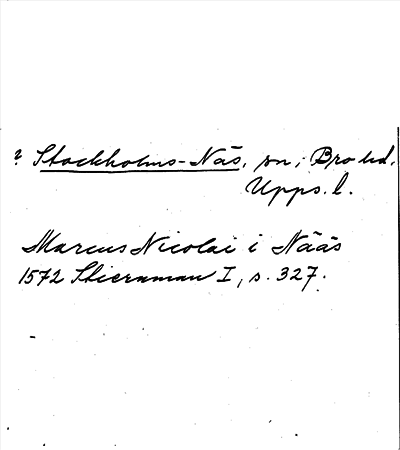 ? Stockholms-Näs, sn; Bro hd.
Upps. l.
Marcus Nicolai i Nääs
1572 Stiernman I, s. 327.